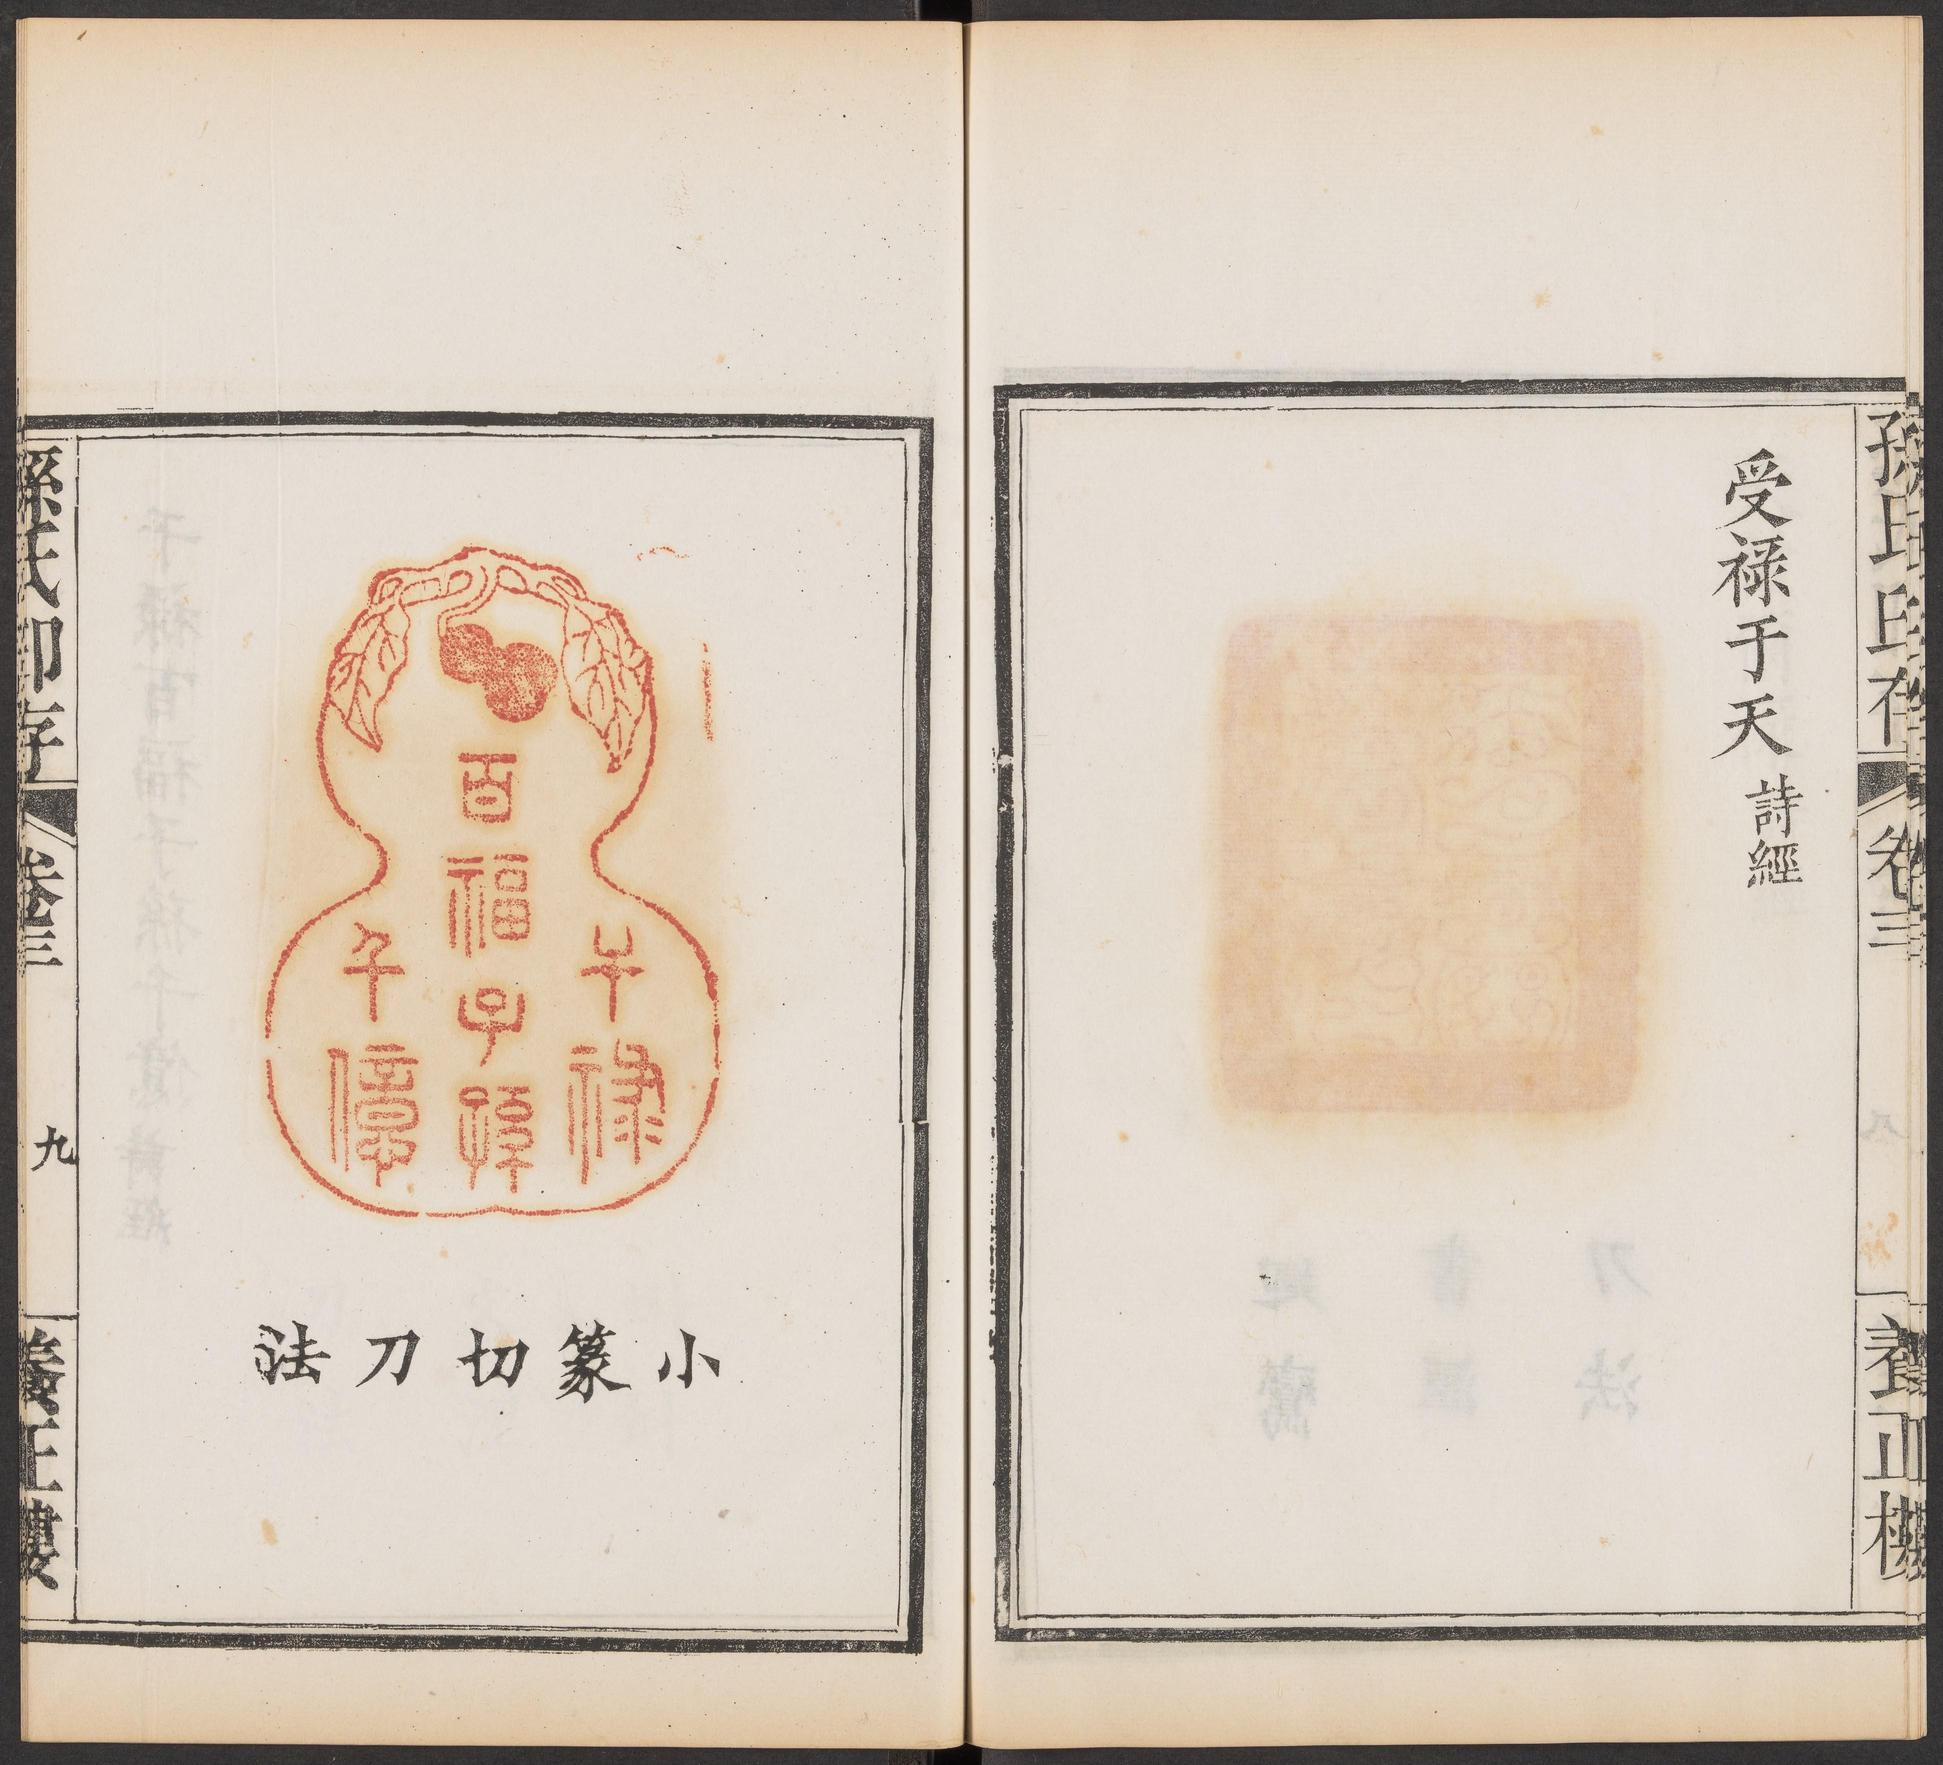 孫氏印存
卷三
養正樓
受祿于天 詩經
干祿
百福子孫
千億
小篆切刀法
孫氏印存
卷三
九
養正樓